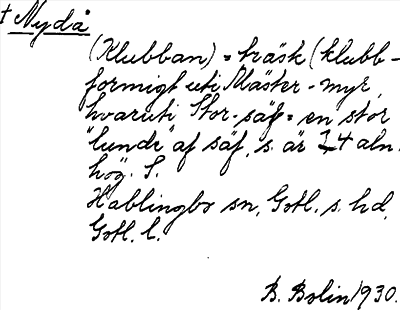 † Nydå
(Klubban) = träsk (klubb-
formigt uti Mäster-myr,
hvaruti Stor-säf = en stor
"lunde" af säf, s. är 4 aln.
hög. S.
Hablingbo sn, Gotl. s. hd,
Gotl. l.
B. Bolin 1930.